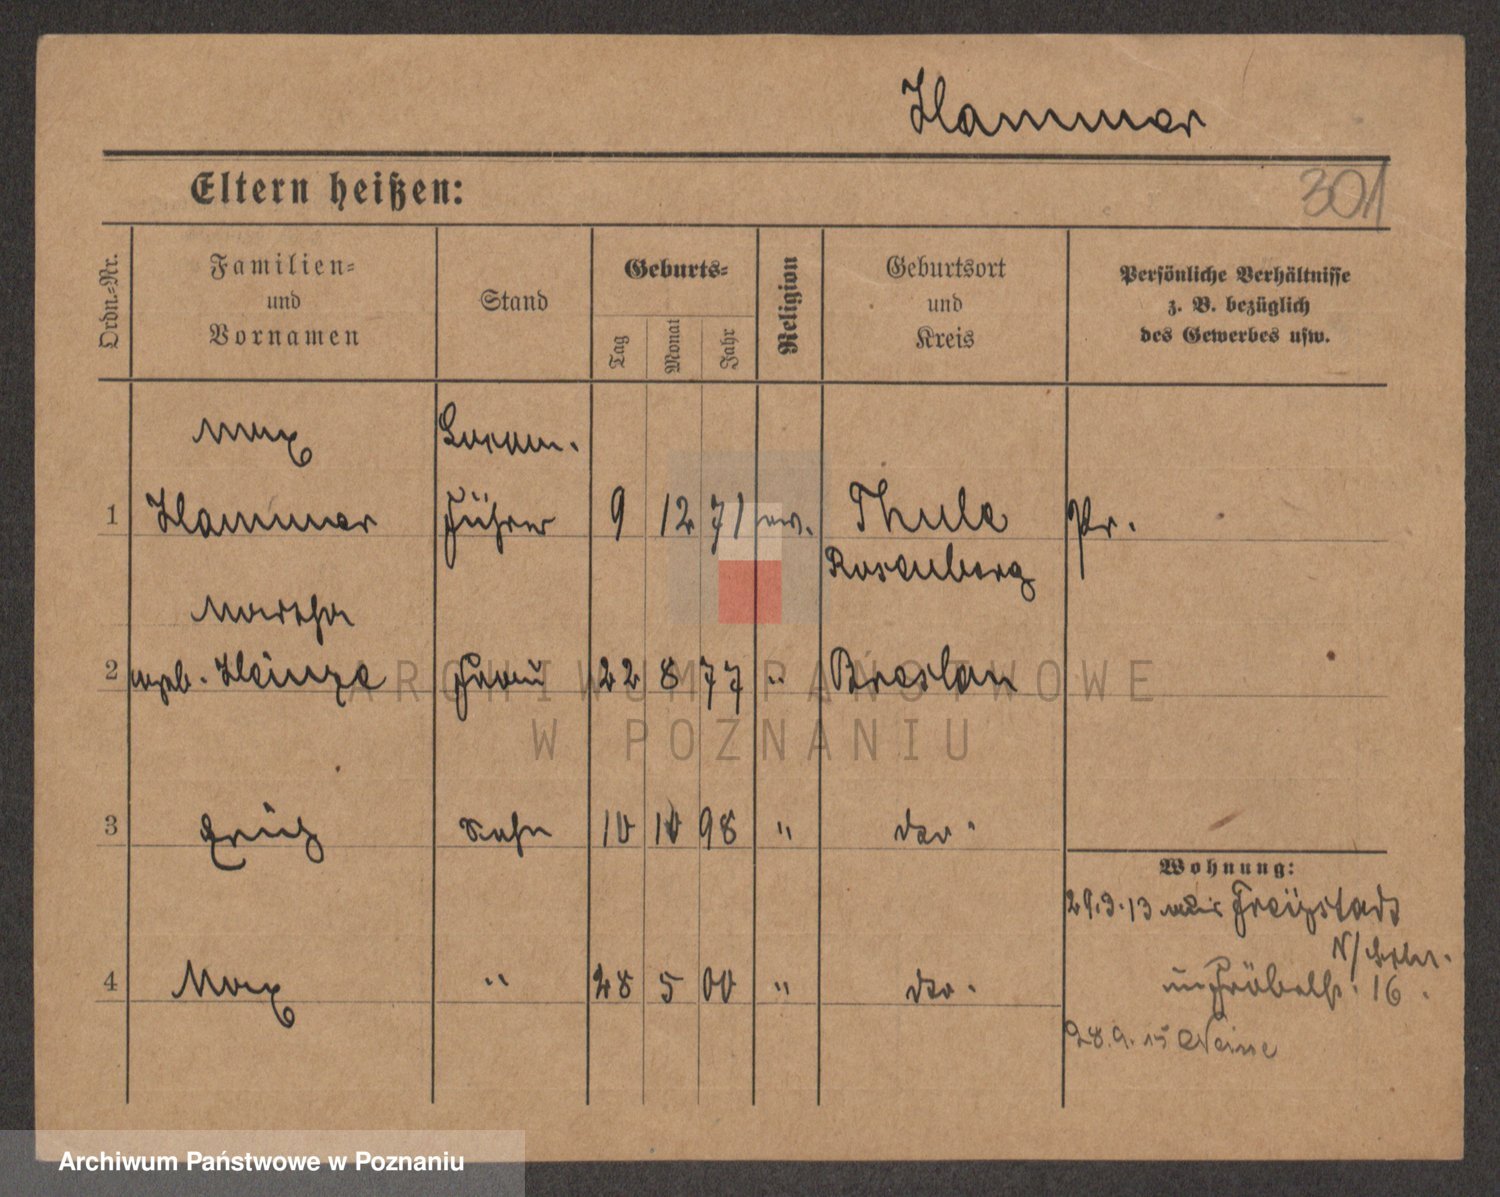 Hammer
Eltern heißen:
301
Ordn.-Nr.
Familien-
und
Vornamen
Stand
Geburts-
Tag
Monat
Jahr
Religion
Geburtsort
und
Kreis
Persönliche Verhältnisse
z. B. bezüglich
des Gewerbes usw.
Max
1 Hammer Führer 9 12 71 ev. Thule Pr.
Rosenberg
Martha
2 geb. Heinze Frau 22 8 77 " Breslau
ARCHIWUM PAŃSTWOWE
W POZNANIU
3 Erich Sohn 10 10 98 " dto.
Wohnung:
29.3.13 Freystadt
4 Max " 28 5 00 " dto.
Fröbelstr. 16.
28.9.15
Archiwum Państwowe w Poznaniu